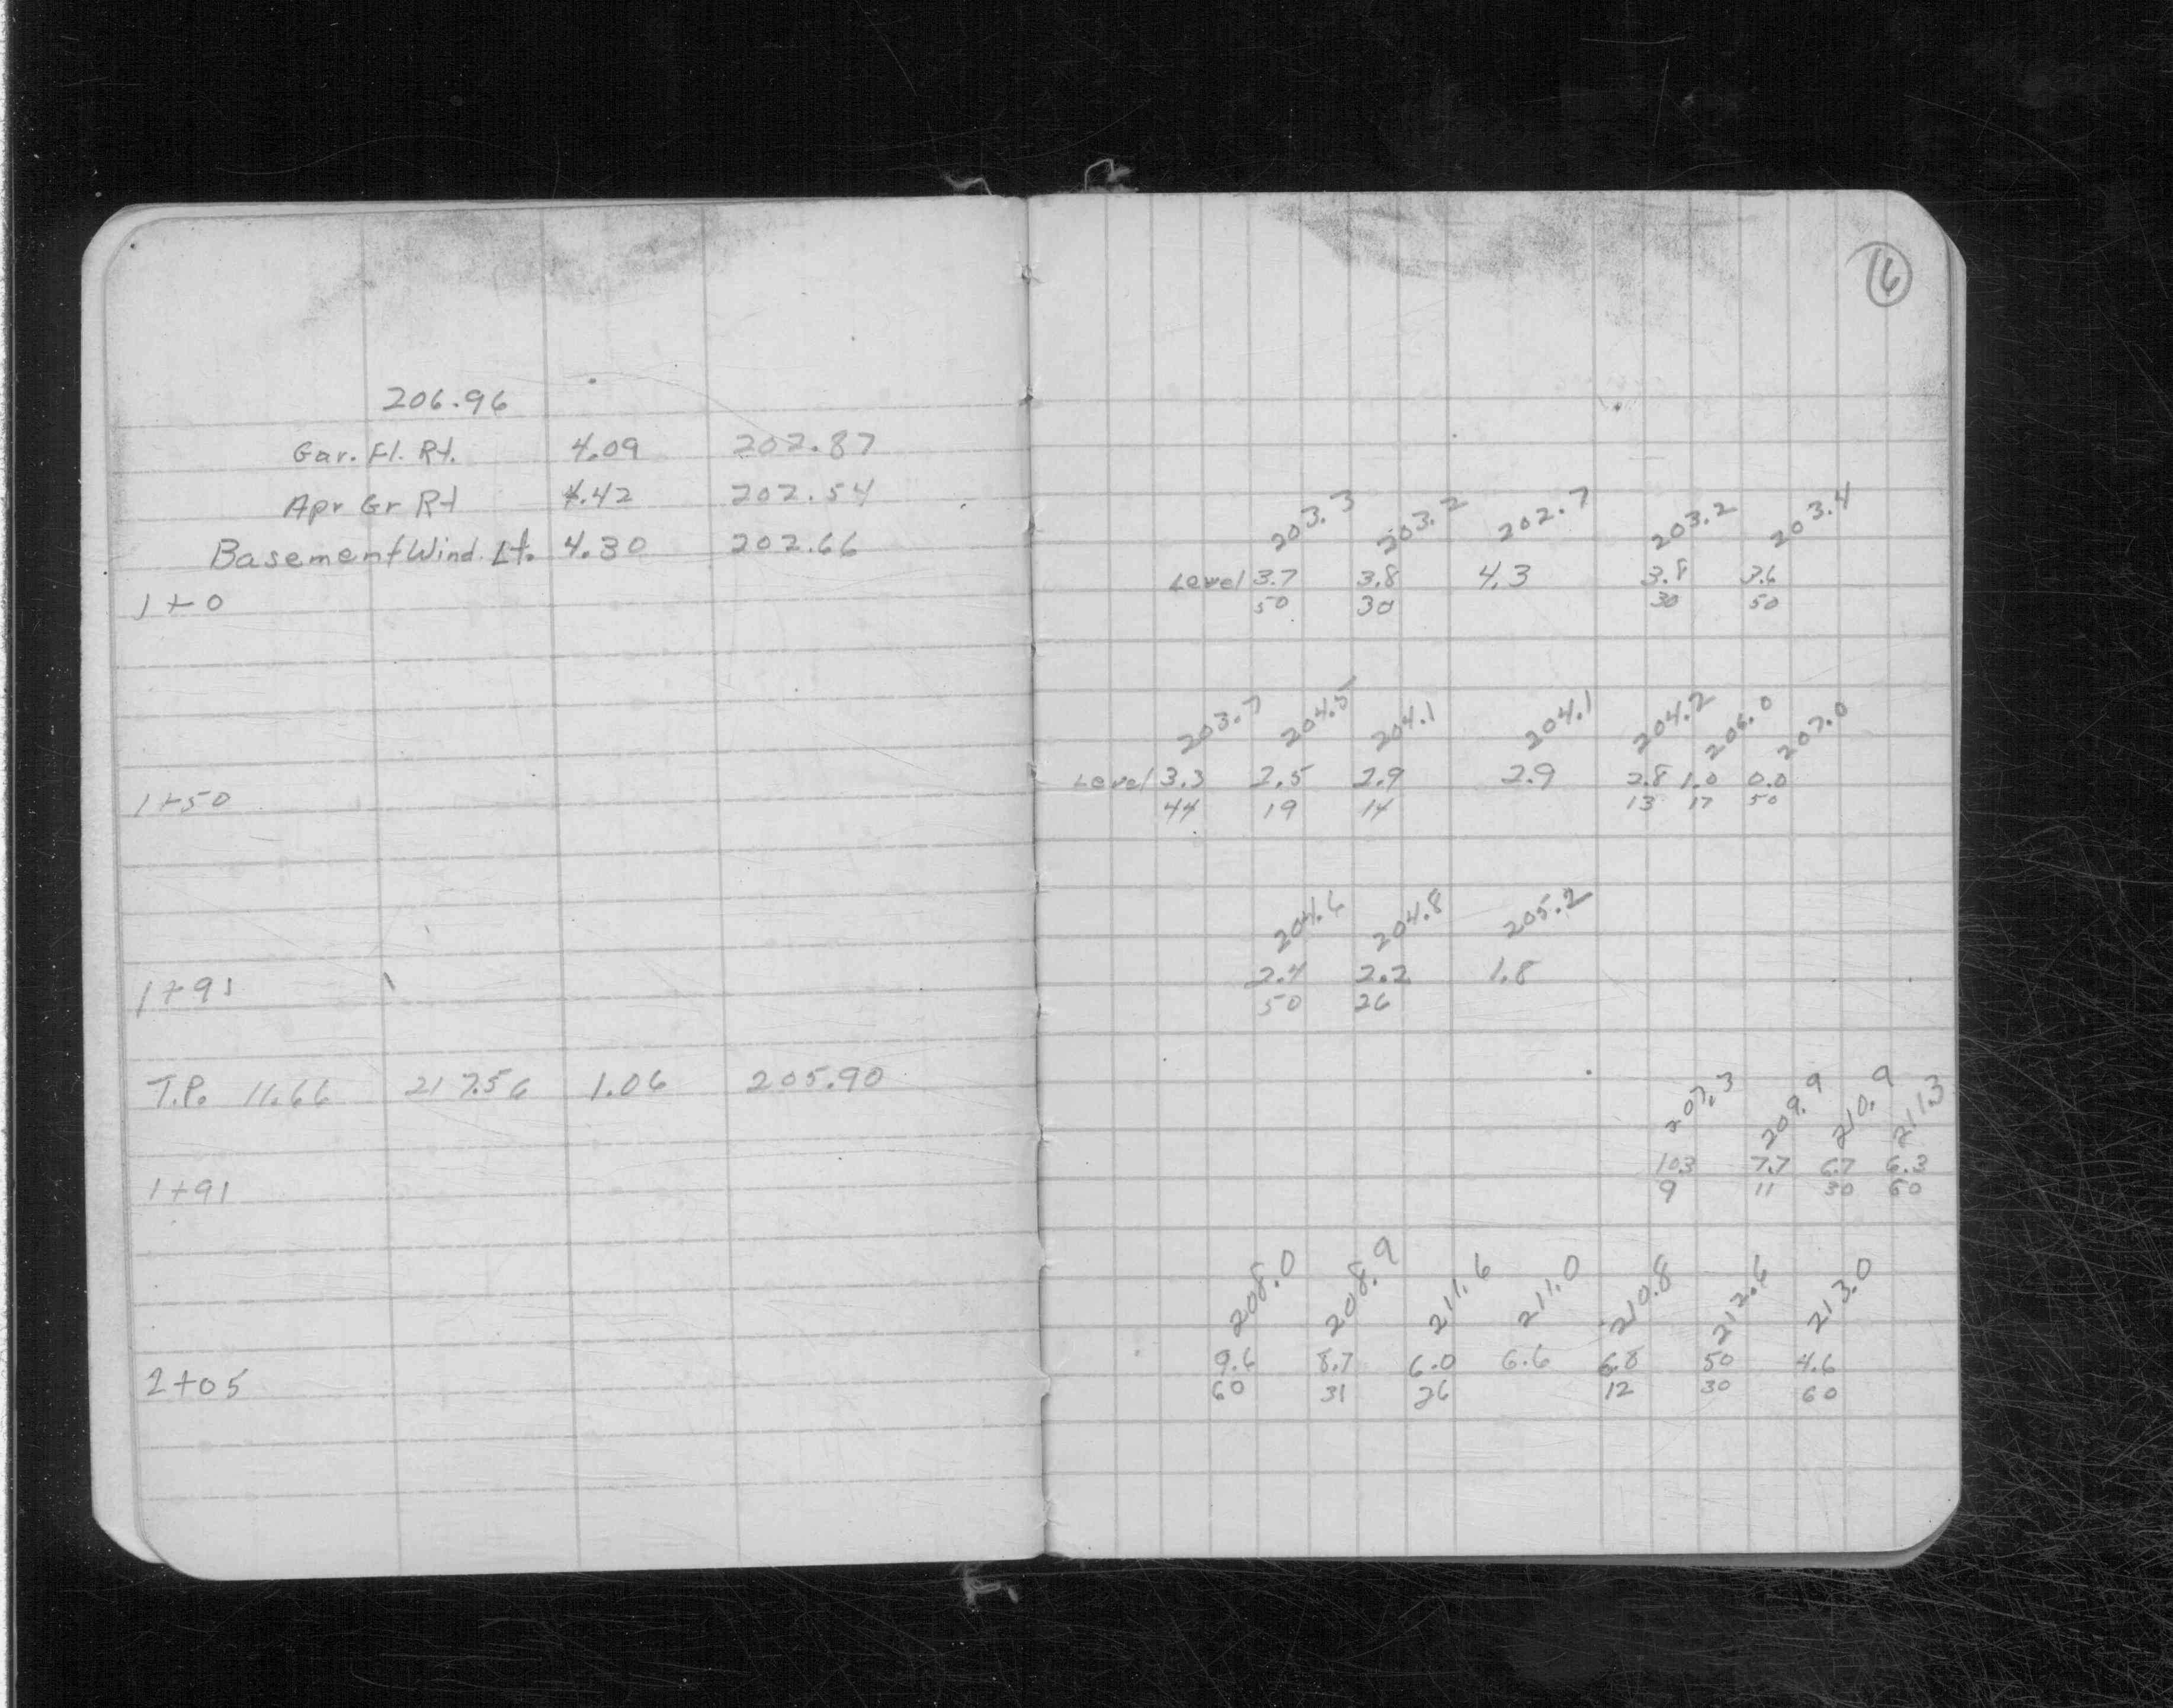 16
206.96
Gar. Fl. Rt. 4.09 202.87
Apr Gr Rt 4.42 202.54
Basement Wind. Lt. 4.30 202.66
203.3 203.2 202.7 203.2 203.4
Level 3.7 3.8 4.3 3.8 3.6
1+0
50 30 30 50
203.7 204.5 204.1 204.1 204.2 206.0 207.0
Level 3.3 2.5 2.9 2.9 2.8 1.0 0.0
1+50
44 19 14 13 17 50
204.6 204.8 205.2
2.4 2.2 1.8
1+91
50 26
T.P. 11.66 217.56 1.06 205.90
207.3 209.9 210.9 211.3
10.3 7.7 6.7 6.3
1+91
9 11 30 60
208.0 208.9 211.6 211.0 210.8 212.6 213.0
9.6 8.7 6.0 6.6 6.8 50 4.6
2+05
60 31 26 12 30 60